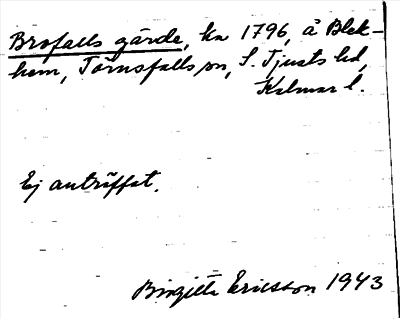 Brofalls gärde, ka 1796, å Blek-
hem, Törnsfalls sn, S. Tjusts hd,
Kalmar l.
Ej anträffat.
Birgitta Ericsson 1943